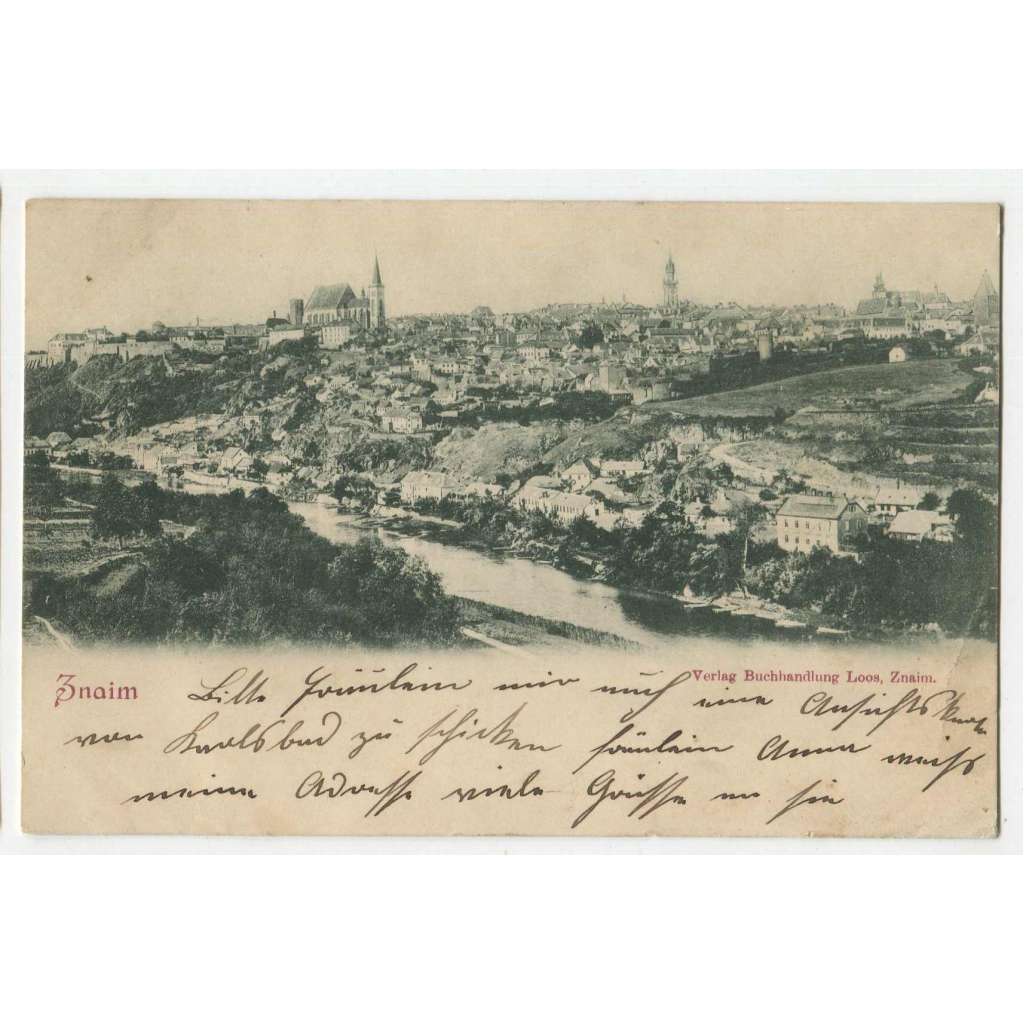 Znaim
Verlag Buchhandlung Loos, Znaim.
Bitte Fräulein mir auch eine Ansichtskarte
von Karlsbad zu schicken fräulein Anna weiß
meine Adresse viele Grüsse an sie